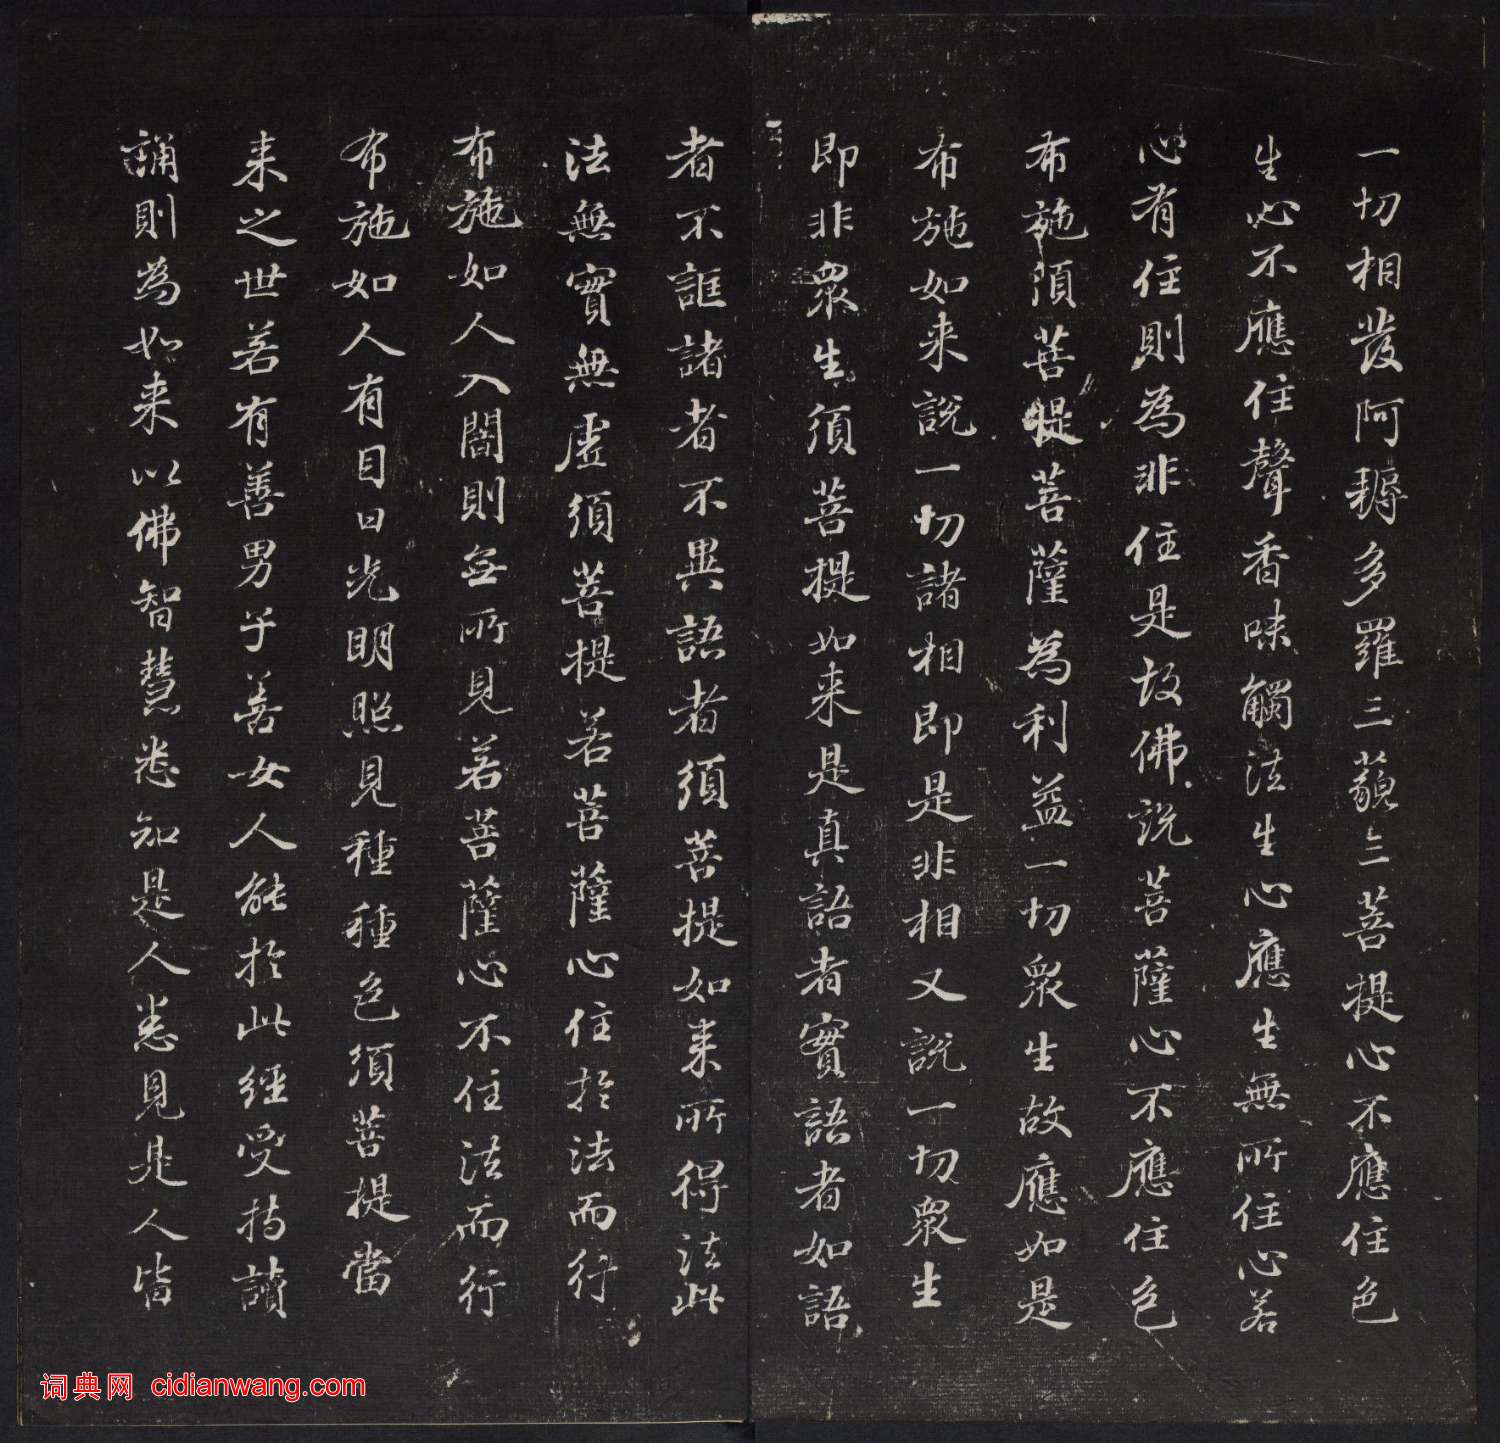 一切相發阿耨多羅三藐三菩提心不應住色
生心不應住聲香味觸法生心應生無所住心若
心有住則為非住是故佛說菩薩心不應住色
布施須菩提菩薩為利益一切眾生故應如是
布施如来說一切諸相即是非相又說一切眾生
即非眾生須菩提如来是真語者實語者如語
者不誑諸者不異語者須菩提如来所得法此
法無實無虛須菩提若菩薩心住於法而行
布施如人入闇則無所見若菩薩心不住法而行
布施如人有目日光明照見種種色須菩提當
来之世若有善男子善女人能於此經受持讀
誦則為如来以佛智慧悉知是人悉見是人皆
词典网 cidianwang.com